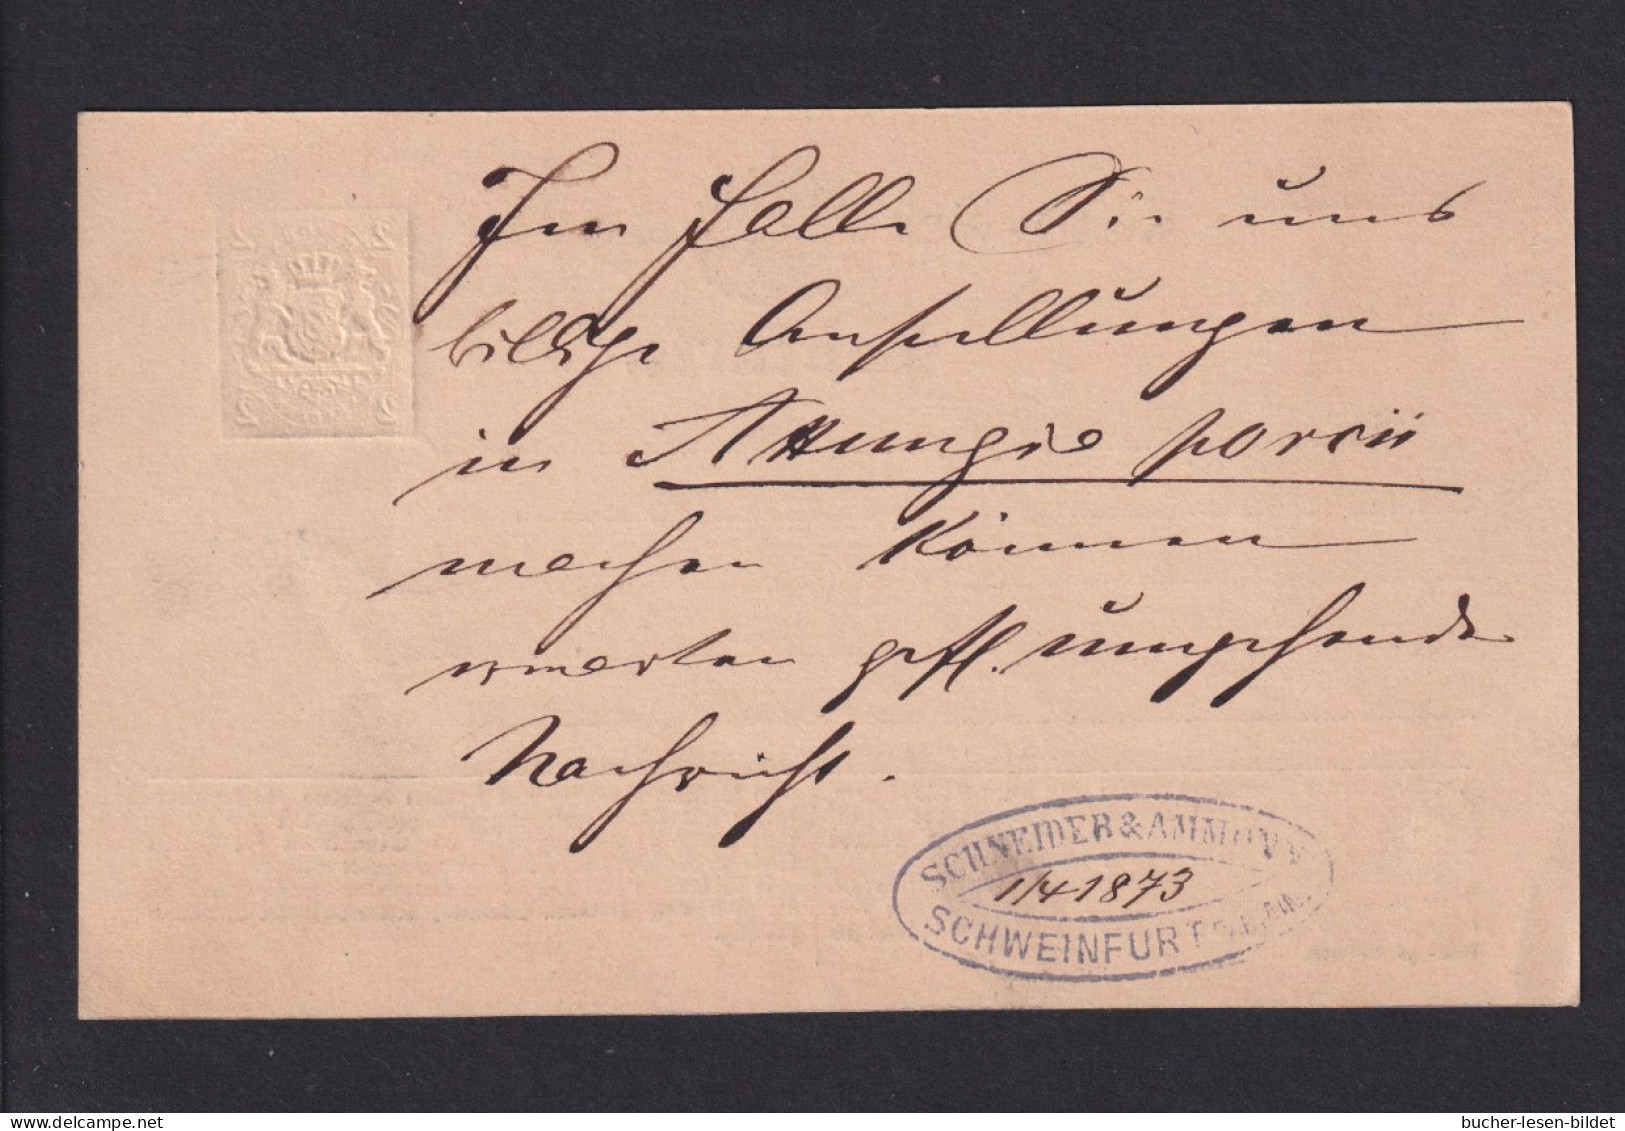 Im Falle Sie uns
billige Anstellungen
in Axungie porcii
machen können
erwarten gefl. umgehende
Nachricht.
SCHNEIDER & AMMON
1/4 1873
SCHWEINFURT
2
2
2
2
bucher-lesen-bildet